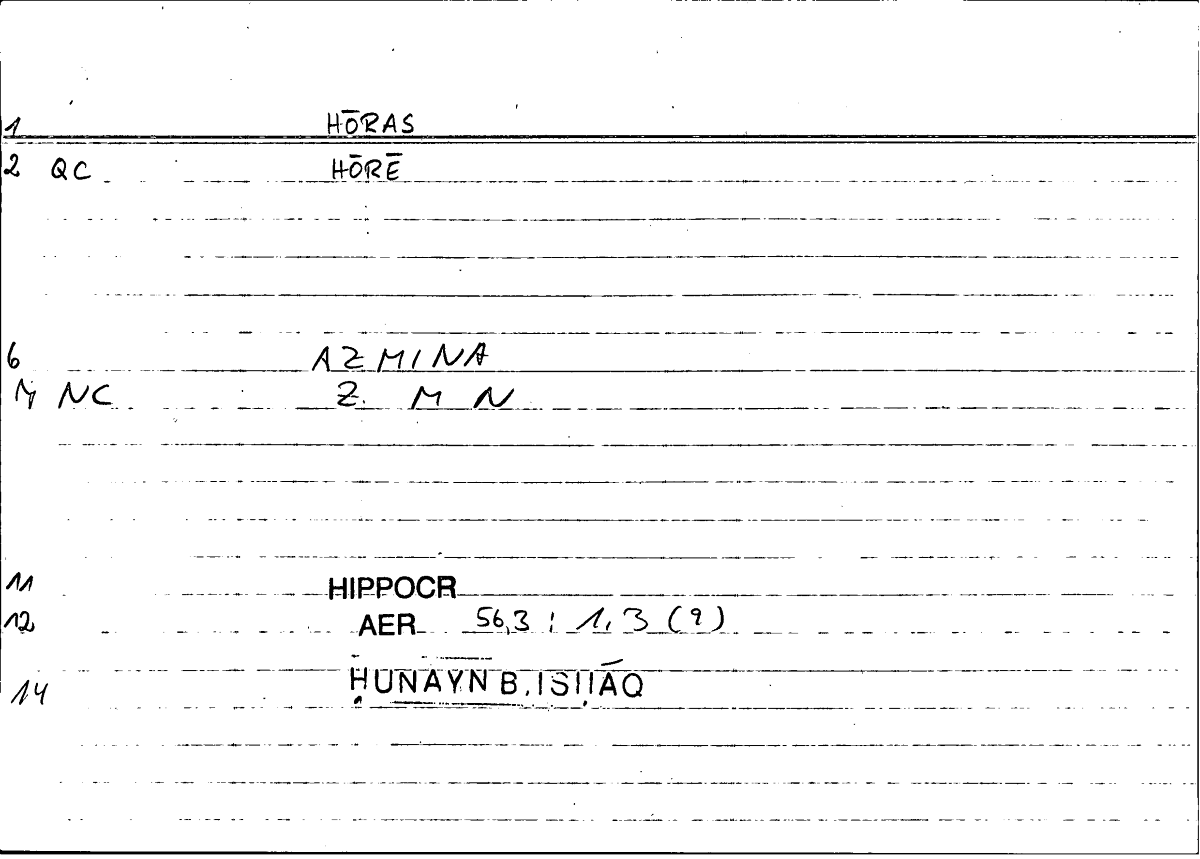 1 HŌRAS
2 QC HŌRĒ
6 AZMINA
7 NC Z M N
11 HIPPOCR
12 AER 56,3 : 1,3 (9)
14 ḤUNAYN B. ISḤĀQ